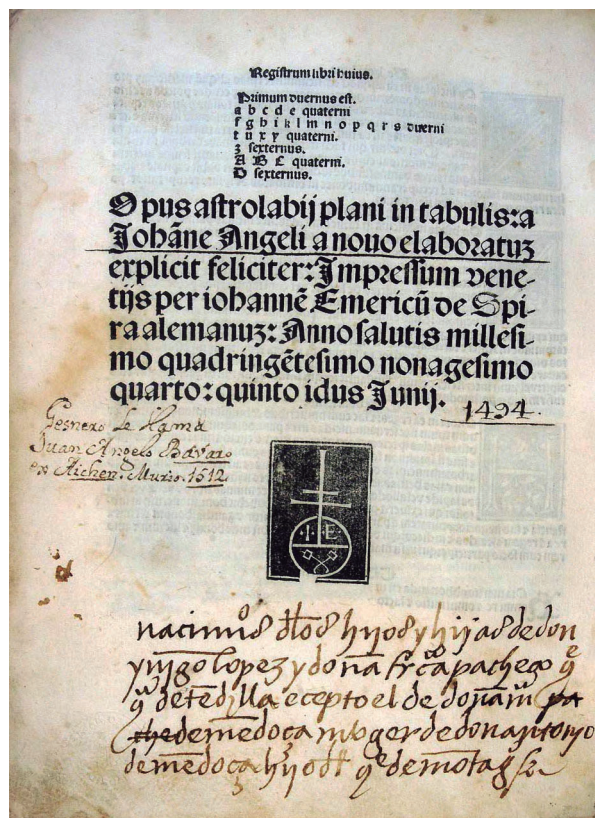 Registrum libri huius.
Primum duernus est.
a b c d e quaterni
f g h i k l m n o p q r s duerni
t u x y quaterni.
z sexternus.
A B C quaterni.
D sexternus.
Opus astrolabij plani in tabulis: a
Johãne Angeli a nouo elaboratuz
explicit feliciter: Impressum vene-
tijs per iohannẽ Emericũ de Spi-
ra alemanuz: Anno salutis millesi-
mo quadringẽtesimo nonagesimo
quarto: quinto idus Junij.
1494.
Gesnero le llama
Juan Angelo Bavaro
ex Aichen. Murio. 1512
I E
hijos y hijas de don
yñigo lopez y doña frca pacheco
de tẽdilla ecepto el de doña mª
de mẽdoça muger de don antonio
de mẽdoça hijo del de mõtag